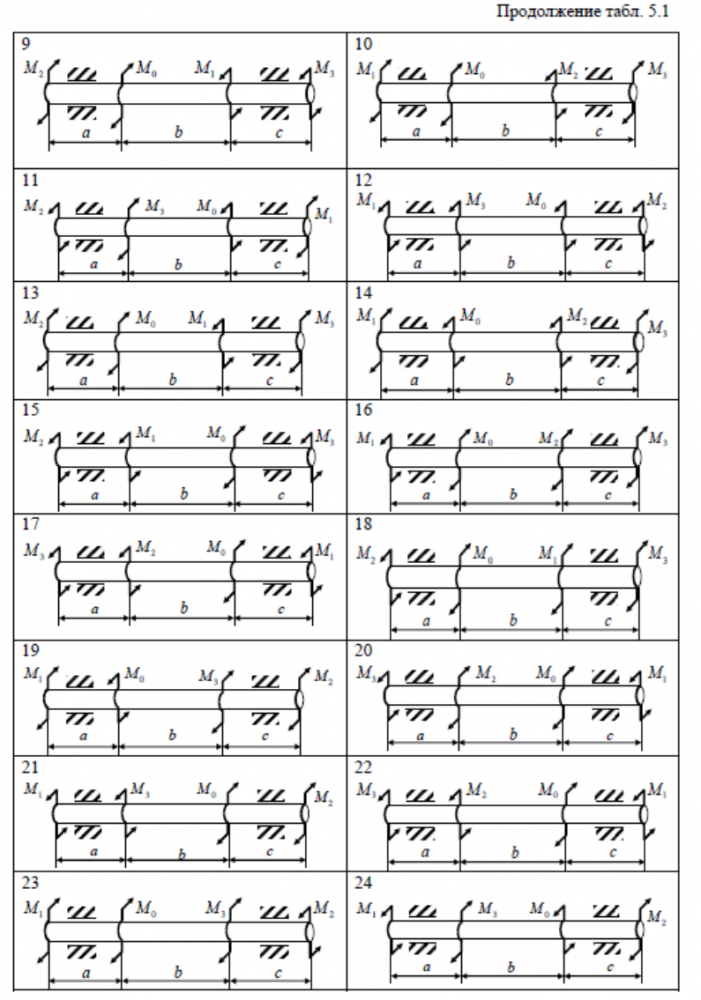 Продолжение табл. 5.1
9
M₂ M₀ M₁ M₃
a b c
10
M₁ M₀ M₂ M₃
a b c
11
M₂ M₃ M₀ M₁
a b c
12
M₁ M₃ M₀ M₂
a b c
13
M₂ M₀ M₁ M₃
a b c
14
M₁ M₀ M₂ M₃
a b c
15
M₂ M₁ M₀ M₃
a b c
16
M₁ M₀ M₂ M₃
a b c
17
M₃ M₂ M₀ M₁
a b c
18
M₂ M₀ M₁ M₃
a b c
19
M₁ M₀ M₃ M₂
a b c
20
M₃ M₂ M₀ M₁
a b c
21
M₁ M₃ M₀ M₂
a b c
22
M₃ M₂ M₀ M₁
a b c
23
M₁ M₀ M₃ M₂
a b c
24
M₁ M₃ M₀ M₂
a b c